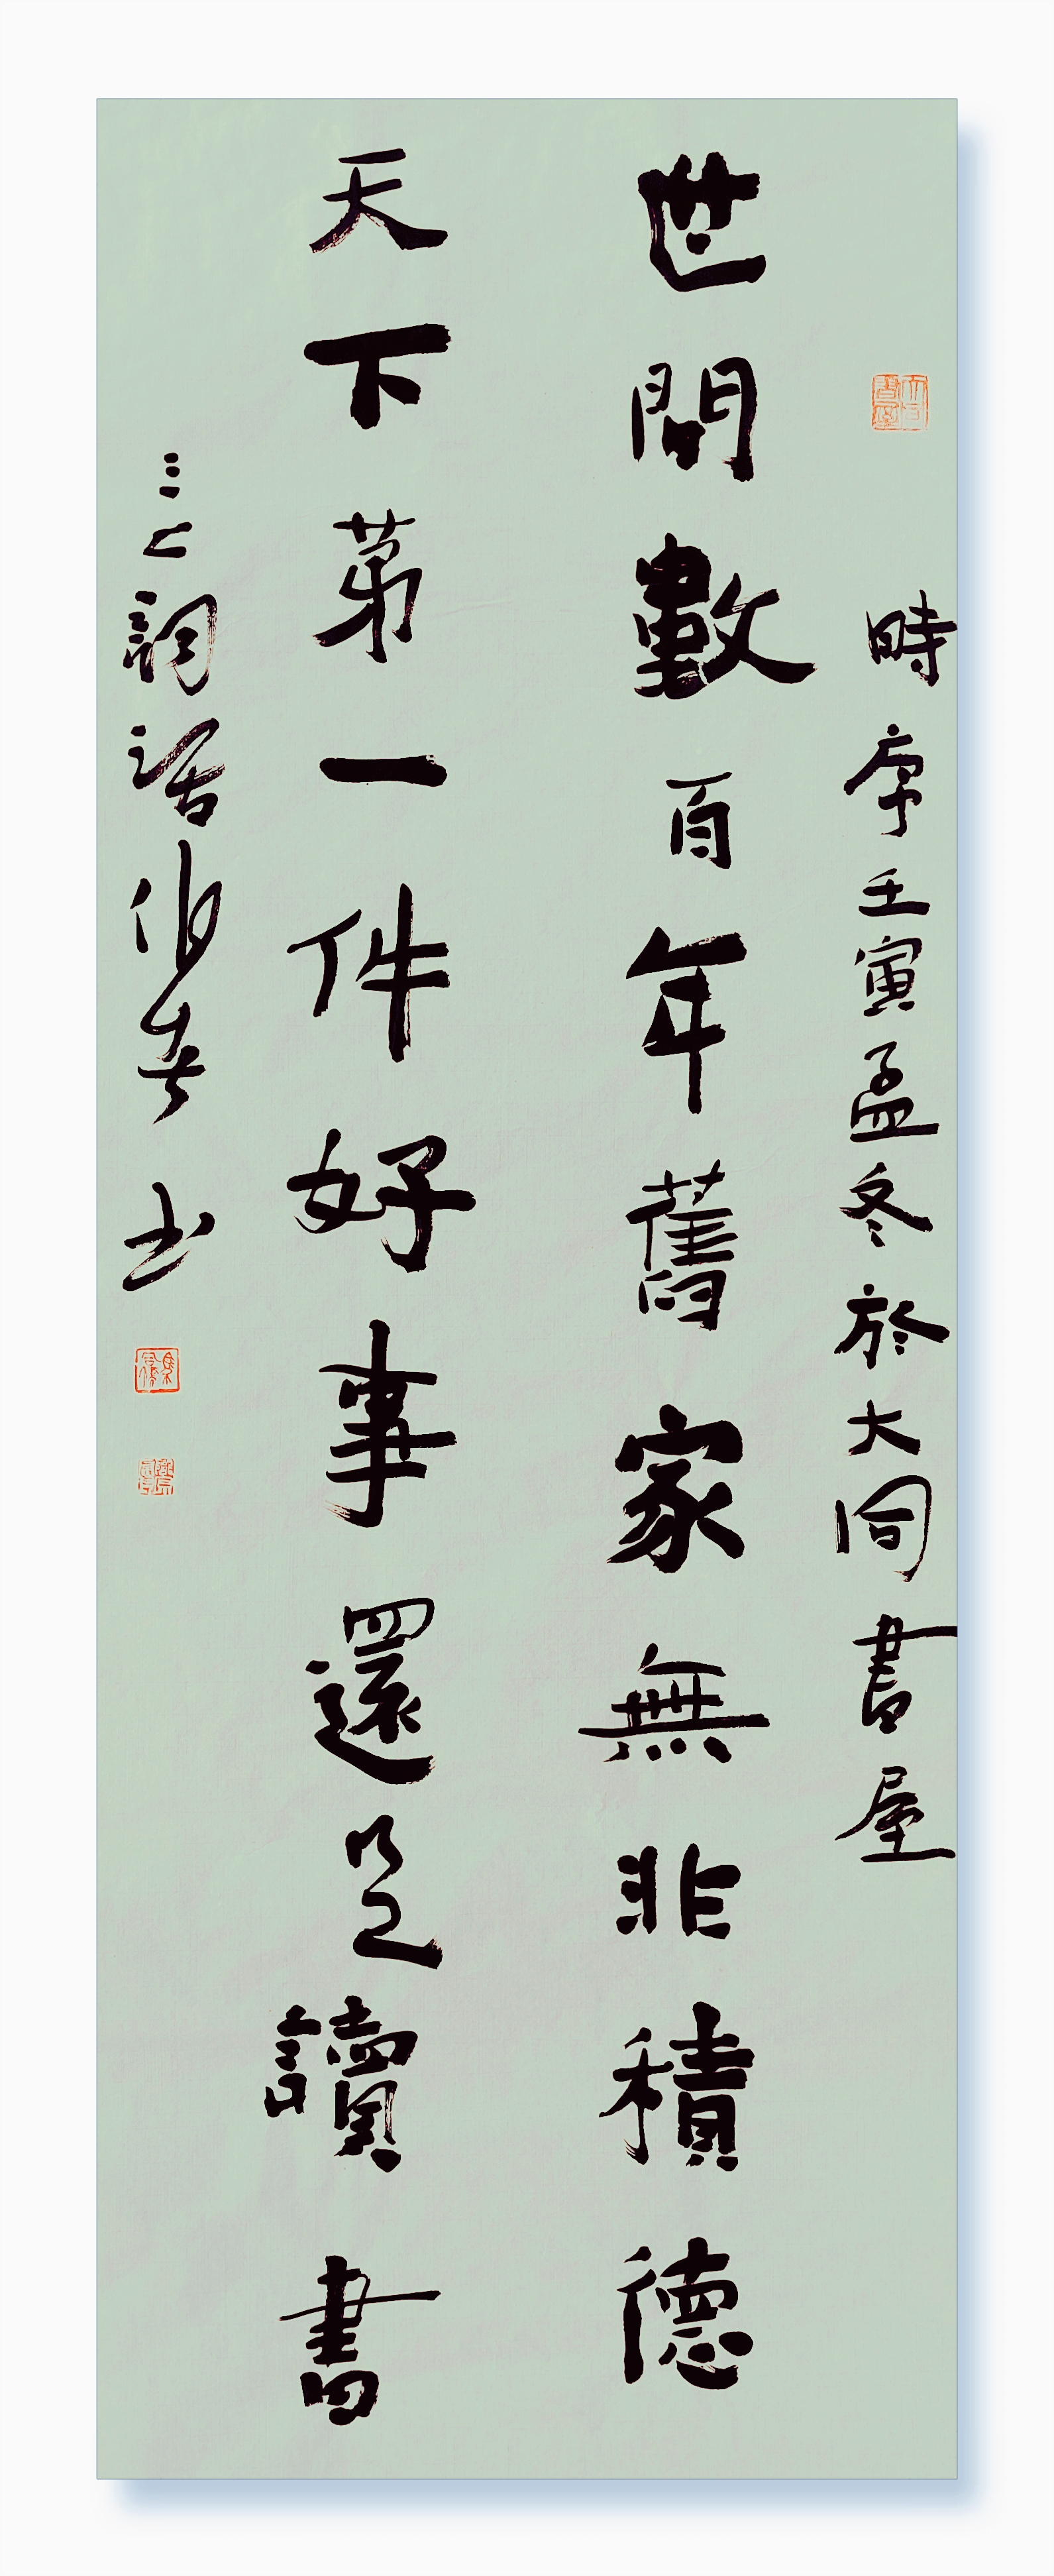 大同書屋
時序壬寅孟冬於大同書屋
世間數百年舊家無非積德
天下苐一件好事還是讀書
三 詞 书